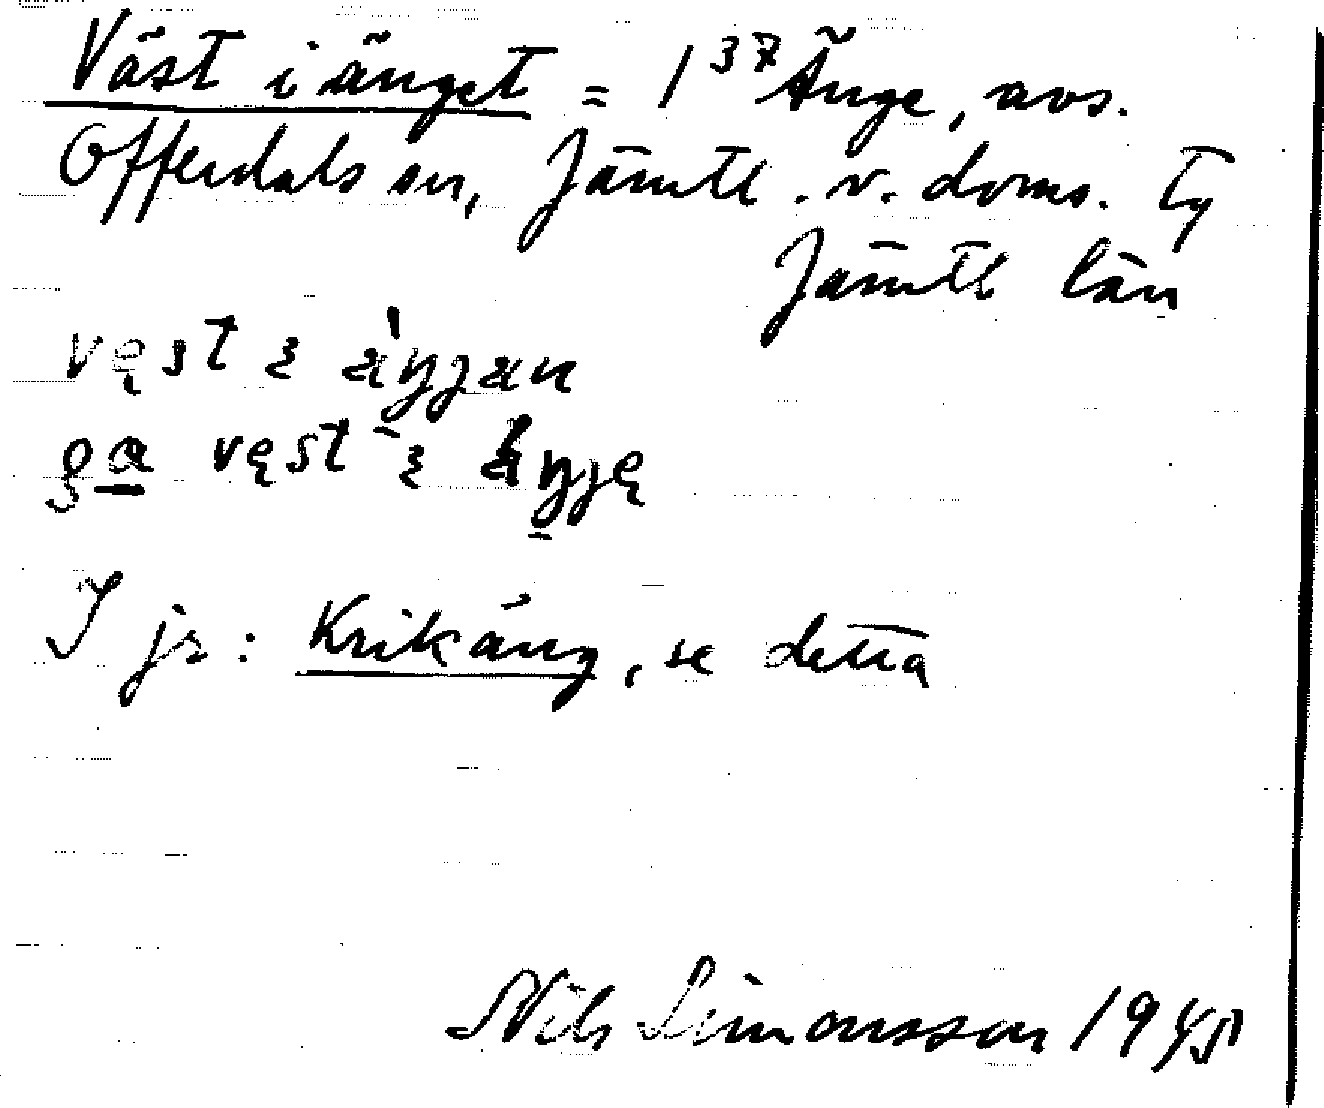 Väst i änget = 1³⁷ Änge, avs.
Offerdals sn, Jämtl. v. doms. Ty
Jämtl län
vęst i äŋɟan
på vęst i äŋɟę
I jr: Krikäng, se detta
Nils Simonsson 1945